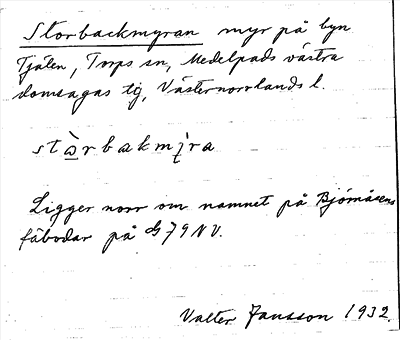 Storbackmyran myr på byn
Tjälen, Torps sn, Medelpads västra
domsagas tg, Västernorrlands l.
stὰrbakmi̯ra
Ligger norr om namnet på Björnåsens
fäbodar på G79NV.
Valter Jansson 1932.